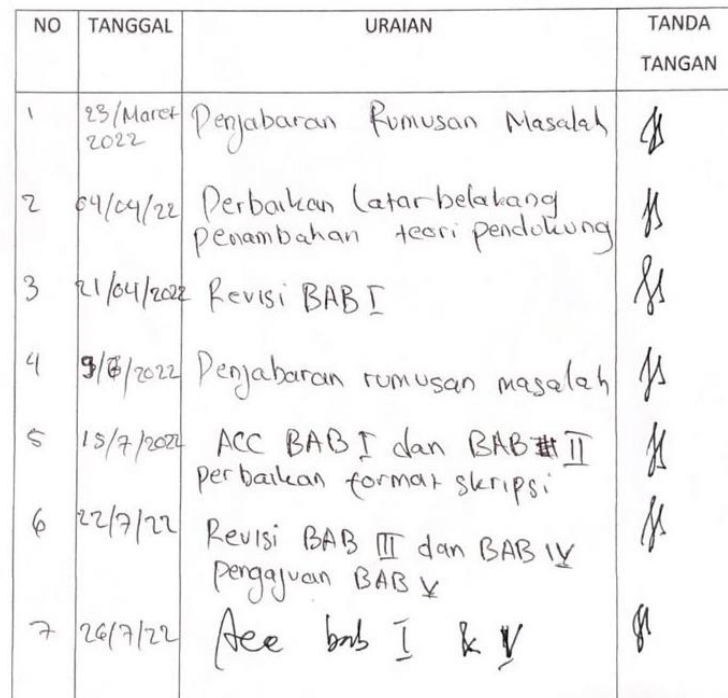 NO TANGGAL URAIAN TANDA TANGAN
1 23/Maret 2022 Penjabaran Rumusan Masalah
2 04/04/22 Perbaikan Latar belakang
penambahan teori pendukung
3 21/04/2022 Revisi BAB I
4 9/6/2022 Penjabaran rumusan masalah
5 15/7/2022 ACC BAB I dan BAB II
perbaikan format skripsi
6 22/7/22 Revisi BAB III dan BAB IV
pengajuan BAB V
7 26/7/22 Acc bab I & V